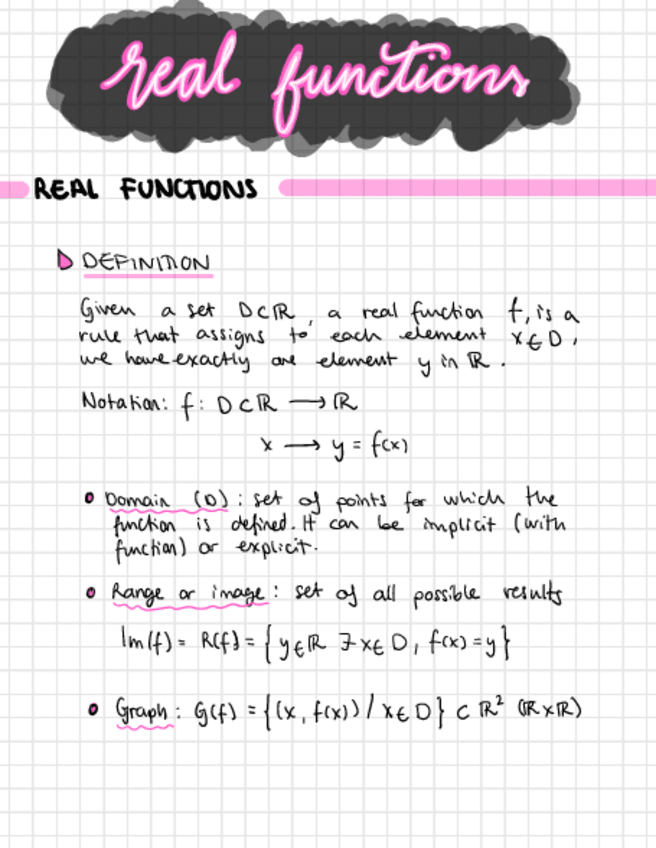 real functions
REAL FUNCTIONS
DEFINITION
Given a set D⊂ℝ, a real function f, is a
rule that assigns to each element x∈D,
we have exactly one element y in ℝ.
Notation: f: D⊂ℝ → ℝ
x → y = f(x)
Domain (D): set of points for which the
function is defined. It can be implicit (with
function) or explicit.
Range or image: set of all possible results
Im(f) = R(f) = {y∈ℝ ∃x∈D, f(x)=y}
Graph: G(f) = {(x, f(x)) / x∈D} ⊂ ℝ² (ℝxℝ)